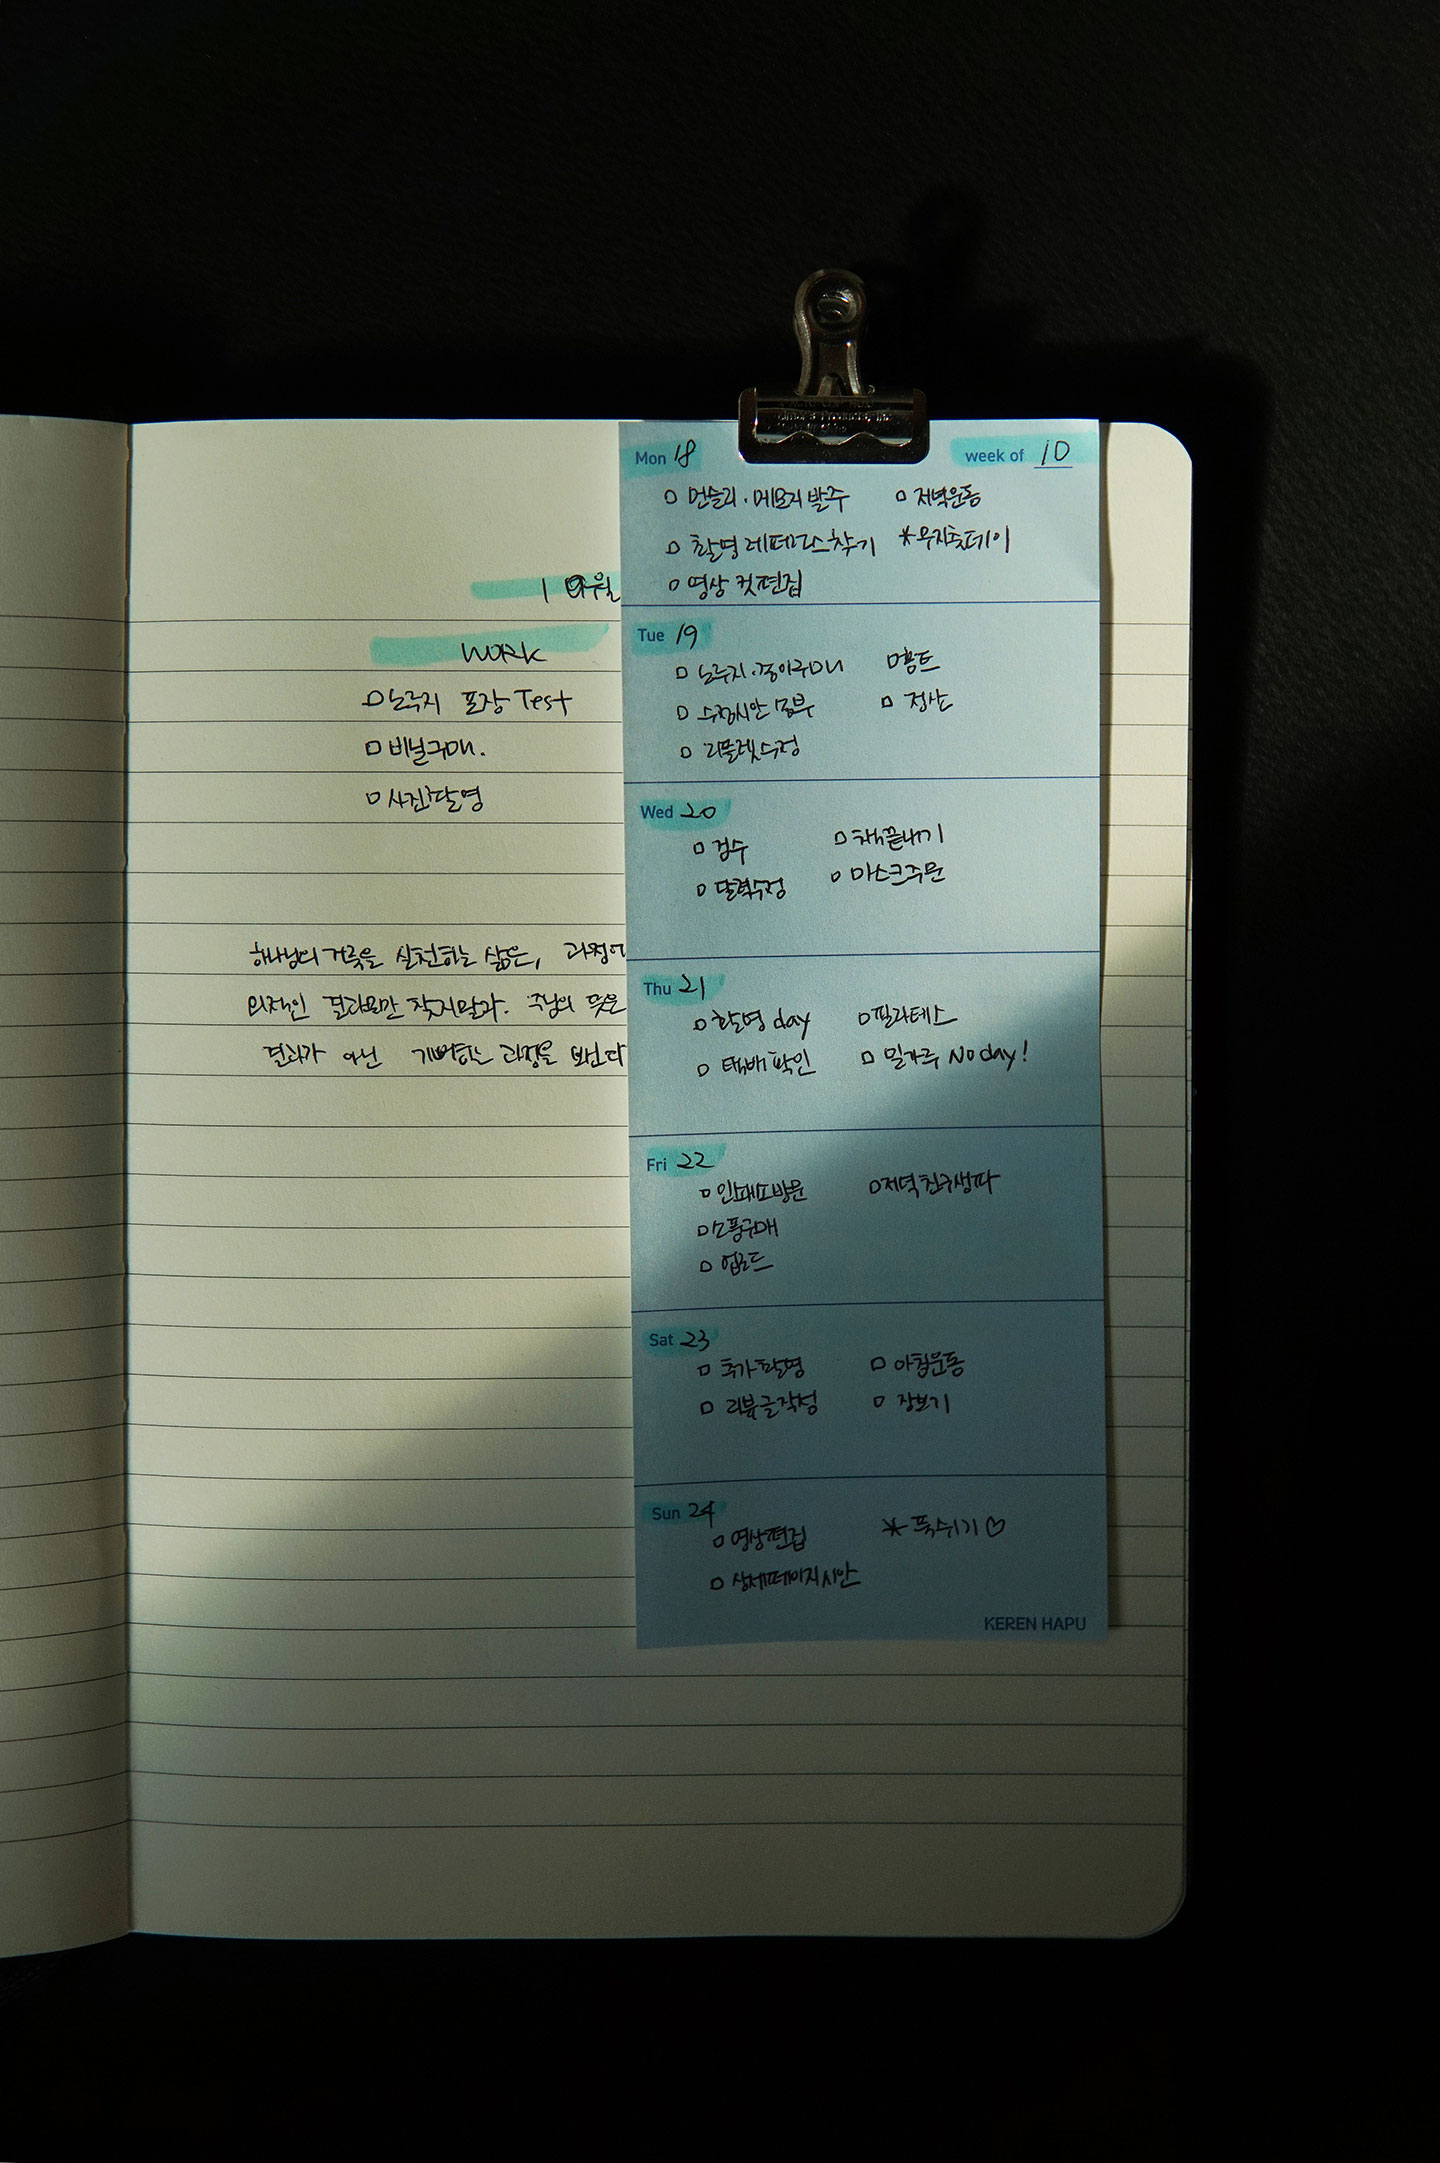 Mon 18
week of 10
□ 먼슬리·메모지 발주
□ 저녁운동
□ 촬영 레퍼런스찾기
*무지출데이
□ 영상 컷편집
1 마월
WORK
□ 노루지 포장 Test
□ 비닐구매.
□ 사진촬영
하나님의 거룩을 실천하는 삶은, 과정에
외적인 결과만 찾지말라. 주님의 뜻은
결과가 아닌 기뻐하는 과정을 보신다
Tue 19
□ 노루지·종이구매
□ 홈트
□ 수정시안 첨부
□ 정산
□ 리플렛수정
Wed 20
□ 검수
□ 책끝내기
□ 달력수정
□ 마스크주문
Thu 21
□ 촬영 day
□ 필라테스
□ 택배 확인
□ 밀가루 No day!
Fri 22
□ 인쇄소방문
□ 저녁 친구생파
□ 소품구매
□ 업로드
Sat 23
□ 추가촬영
□ 아침운동
□ 리뷰글작성
□ 장보기
Sun 24
□ 영상편집
* 푹쉬기♡
□ 상세페이지시안
KEREN HAPU